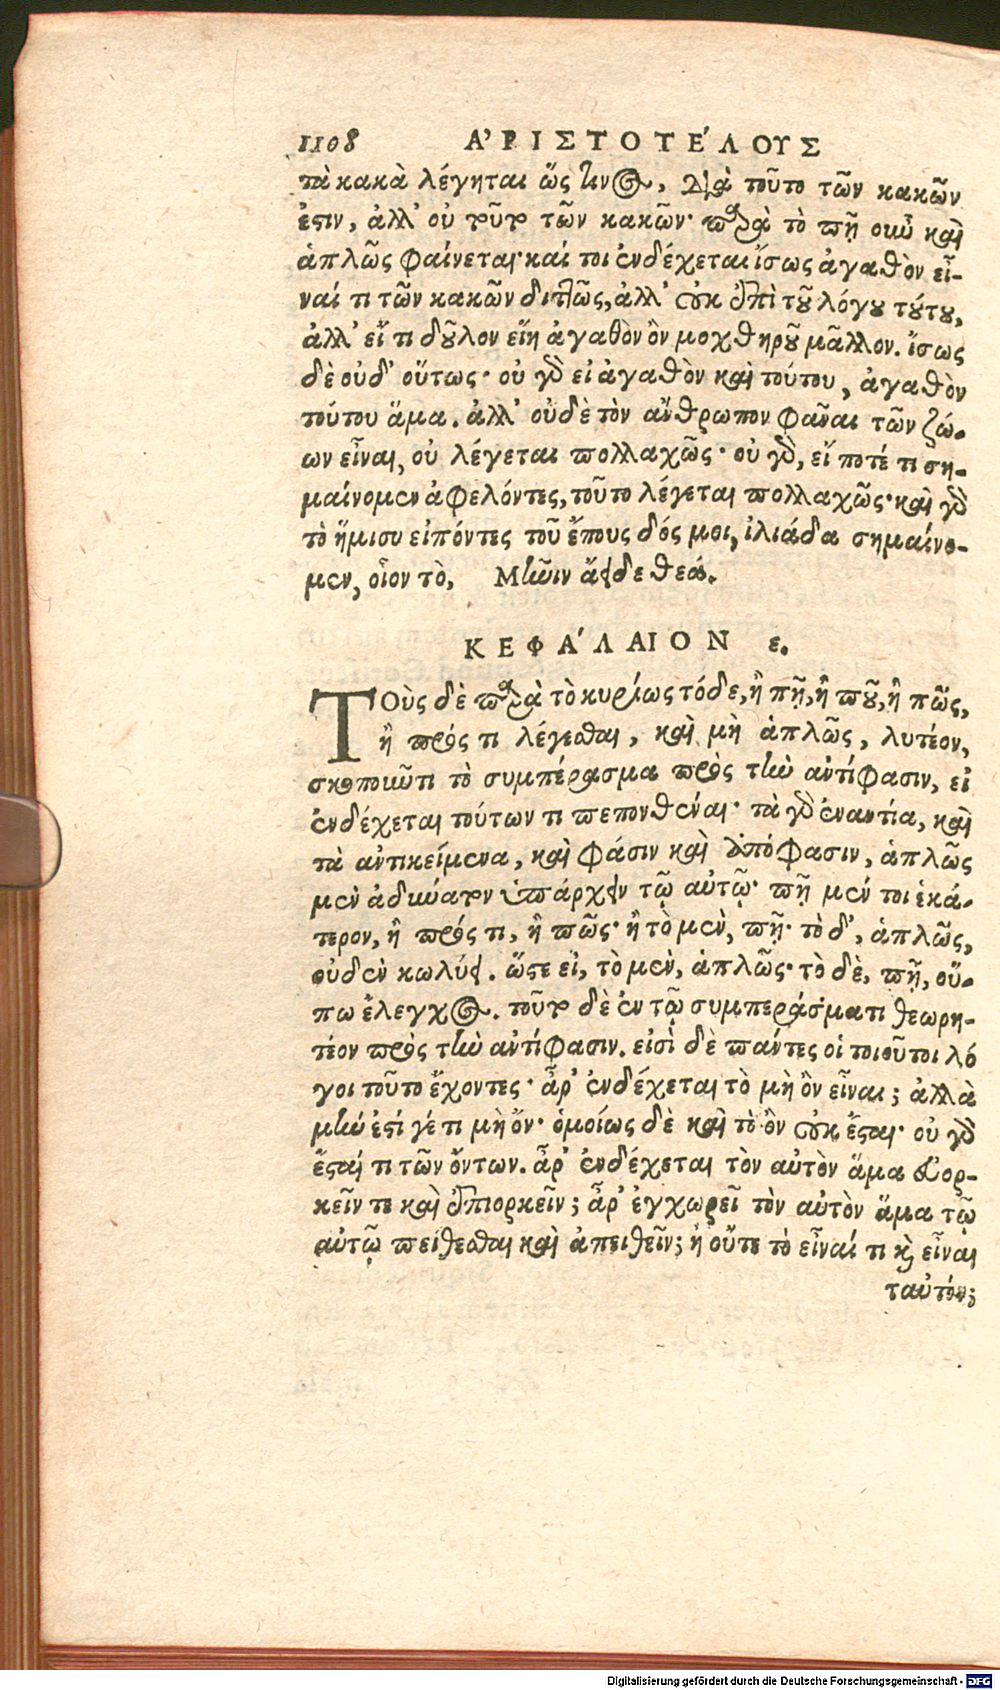 1108 ΑʼΡΙΣΤΟΤΕʹΛΟΥΣ
τὰ κακὰ λέγηται ὥς τινος, διὰ τοῦτο τῶν κακῶν
ἐστιν, ἀλλ' οὐ τοῦτο τῶν κακῶν· παρὰ τὸ πῆ οὖν καὶ
ἁπλῶς φαίνεται· καί τοι ἐνδέχεται ἴσως ἀγαθὸν εἶ-
ναί τι τῶν κακῶν διττῶς, ἀλλ' οὐκ ἐπὶ τοῦ λόγου τούτου,
ἀλλ' εἴ τι δοῦλον εἴη ἀγαθὸν ὂν μοχθηροῦ μᾶλλον. ἴσως
δὲ οὐδ' οὕτως· οὐ γὰρ εἰ ἀγαθὸν καὶ τούτου, ἀγαθὸν
τούτου ἅμα. ἀλλ' οὐδὲ τὸν ἄνθρωπον φᾶναι τῶν ζώ-
ων εἶναι, οὐ λέγεται πολλαχῶς· οὐ γὰρ, εἴ ποτέ τι ση-
μαίνομεν ἀφελόντες, τοῦτο λέγεται πολλαχῶς· καὶ γὰρ
τὸ ἥμισυ εἰπόντες τοῦ ἔπους δός μοι, ἰλιάδα σημαίνο-
μεν, οἷον τὸ, Μῆνιν ἄειδε θεά.
ΚΕΦΑʹΛΑΙΟΝ ε.
ΤΟὺς δὲ παρὰ τὸ κυρίως τόδε, ἢ πῆ, ἢ ποῦ, ἢ πῶς,
ἢ πρός τι λέγεσθαι, καὶ μὴ ἁπλῶς, λυτέον,
σκοποιῶτι τὸ συμπέρασμα πρὸς τὴν ἀντίφασιν, εἰ
ἐνδέχεται τούτων τι πεπονθέναι· τὰ γὰρ ἐναντία, καὶ
τὰ ἀντικείμενα, καὶ φάσιν καὶ ἀπόφασιν, ἁπλῶς
μὲν ἀδύνατον ὑπάρχειν τῷ αὐτῷ· πῆ μέν τοι ἑκά-
τερον, ἢ πρός τι, ἢ πῶς· ἢ τὸ μὲν, πῆ· τὸ δ', ἁπλῶς,
οὐδὲν κωλύει. ὥστε εἰ, τὸ μὲν, ἁπλῶς· τὸ δὲ, πῆ, οὔ-
πω ἔλεγχος. τοῦτο δὲ ἐν τῷ συμπεράσματι θεωρη-
τέον πρὸς τὴν ἀντίφασιν. εἰσὶ δὲ πάντες οἱ τοιοῦτοι λό
γοι τοῦτο ἔχοντες· ἆρ' ἐνδέχεται τὸ μὴ ὂν εἶναι; ἀλλὰ
μὴν ἐστί γέ τι μὴ ὄν· ὁμοίως δὲ καὶ τὸ ὂν οὐκ ἔσται· οὐ γὰρ
ἔσται τι τῶν ὄντων. ἆρ' ἐνδέχεται τὸν αὐτὸν ἅμα εὐορ-
κεῖν τε καὶ ἐπιορκεῖν; ἆρ' ἐγχωρεῖ τὸν αὐτὸν ἅμα τῷ
αὐτῷ πείθεσθαι καὶ ἀπειθεῖν; ἢ οὔτε τὸ εἶναί τι καὶ εἶναι
ταὐτόν;
Digitalisierung gefördert durch die Deutsche Forschungsgemeinschaft - DFG